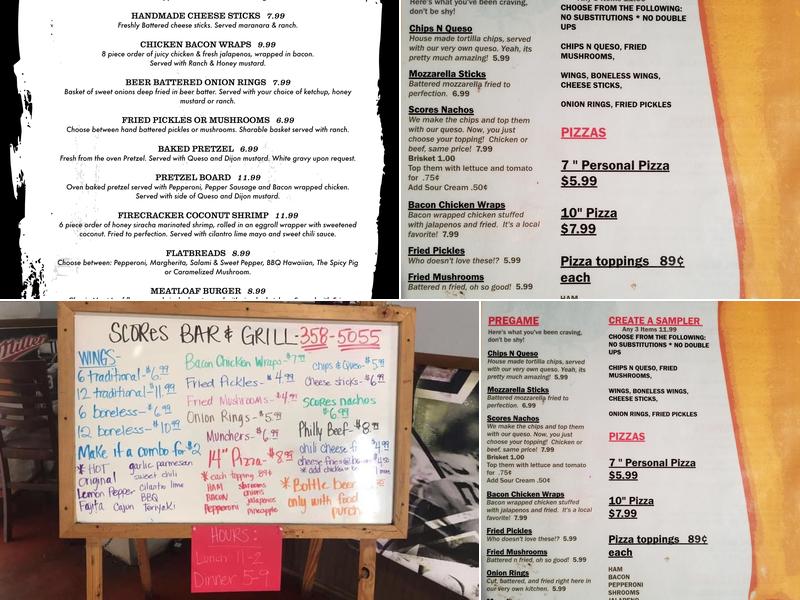 HANDMADE CHEESE STICKS 7.99
Freshly Battered cheese sticks. Served maranara & ranch.
CHICKEN BACON WRAPS 9.99
8 piece order of juicy chicken & fresh jalapenos, wrapped in bacon.
Served with Ranch & Honey mustard.
BEER BATTERED ONION RINGS 7.99
Basket of sweet onions deep fried in beer batter. Served with your choice of ketchup, honey
mustard or ranch.
FRIED PICKLES OR MUSHROOMS 6.99
Choose between hand battered pickles or mushrooms. Sharable basket served with ranch.
BAKED PRETZEL 6.99
Fresh from the oven Pretzel. Served with Queso and Dijon mustard. White gravy upon request.
PRETZEL BOARD 11.99
Oven baked pretzel served with Pepperoni, Pepper Sausage and Bacon wrapped chicken.
Served with side of Queso and Dijon mustard.
FIRECRACKER COCONUT SHRIMP 11.99
6 piece order of honey siracha marinated shrimp, rolled in an eggroll wrapper with sweetened
coconut. Fried to perfection. Served with cilantro lime mayo and sweet chili sauce.
FLATBREADS 8.99
Choose between: Pepperoni, Margherita, Salami & Sweet Pepper, BBQ Hawaiian, The Spicy Pig
or Caramelized Mushroom.
MEATLOAF BURGER 8.99
Here's what you've been craving,
don't be shy!
Chips N Queso
House made tortilla chips, served
with our very own queso. Yeah, its
pretty much amazing! 5.99
Mozzarella Sticks
Battered mozzarella fried to
perfection. 6.99
Scores Nachos
We make the chips and top them
with our queso. Now, you just
choose your topping! Chicken or
beef, same price! 7.99
Brisket 1.00
Top them with lettuce and tomato
for .75¢
Add Sour Cream .50¢
Bacon Chicken Wraps
Bacon wrapped chicken stuffed
with jalapenos and fried. It's a local
favorite! 7.99
Fried Pickles
Who doesn't love these!? 5.99
Fried Mushrooms
Battered n fried, oh so good! 5.99
CHOOSE FROM THE FOLLOWING:
NO SUBSTITUTIONS * NO DOUBLE
UPS
CHIPS N QUESO, FRIED
MUSHROOMS,
WINGS, BONELESS WINGS,
CHEESE STICKS,
ONION RINGS, FRIED PICKLES
PIZZAS
7 " Personal Pizza
$5.99
10" Pizza
$7.99
Pizza toppings 89¢
each
HAM
Miller
SCORES BAR & GRILL-358-5055
WINGS-
6 traditional-$6.99
12 traditional-$11.99
6 boneless-$6.99
12 boneless-$10.99
Make it a combo for $2
* HOT garlic parmesan
original sweet chili
Lemon Pepper cilantro lime
Fajita Cajun BBQ Teriyaki
Bacon Chicken Wraps-$7.99
Fried Pickles-$4.99
Fried Mushrooms-$4.99
Onion Rings-$5.99
Munchers-$6.99
14" Pizza-$8.99
* each topping 89¢
HAM shrooms
BACON onions
Pepperoni jalapenos
pineapple
chips & Queso-$5.99
cheese sticks-$6.99
scores nachos
$6.99
Philly Beef-$8.99
chili cheese
* add chicken
* Bottle beer
only with food
purch
HOURS:
Lunch 11-2
Dinner 5-9
PREGAME
Here's what you've been craving,
don't be shy!
Chips N Queso
House made tortilla chips, served
with our very own queso. Yeah, its
pretty much amazing! 5.99
Mozzarella Sticks
Battered mozzarella fried to
perfection. 6.99
Scores Nachos
We make the chips and top them
with our queso. Now, you just
choose your topping! Chicken or
beef, same price! 7.99
Brisket 1.00
Top them with lettuce and tomato
for .75¢
Add Sour Cream .50¢
Bacon Chicken Wraps
Bacon wrapped chicken stuffed
with jalapenos and fried. It's a local
favorite! 7.99
Fried Pickles
Who doesn't love these!? 5.99
Fried Mushrooms
Battered n fried, oh so good! 5.99
Onion Rings
Cut, battered, and fried right here in
our very own kitchen. 5.99
CREATE A SAMPLER
Any 3 Items 11.99
CHOOSE FROM THE FOLLOWING:
NO SUBSTITUTIONS * NO DOUBLE
UPS
CHIPS N QUESO, FRIED
MUSHROOMS,
WINGS, BONELESS WINGS,
CHEESE STICKS,
ONION RINGS, FRIED PICKLES
PIZZAS
7 " Personal Pizza
$5.99
10" Pizza
$7.99
Pizza toppings 89¢
each
HAM
BACON
PEPPERONI
SHROOMS